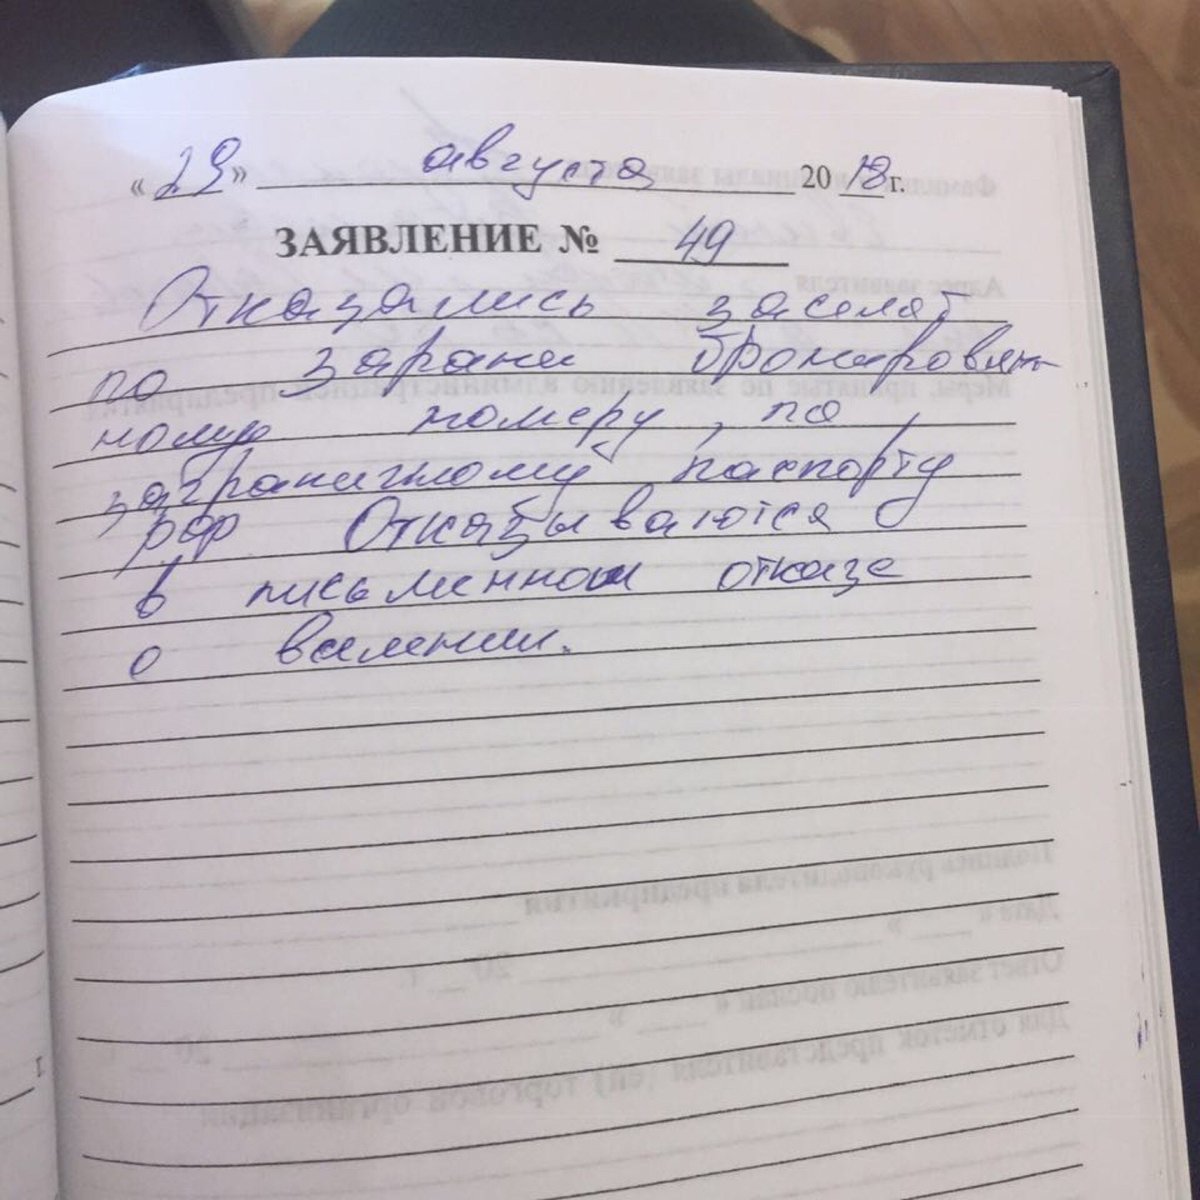 «29» августа 2018г.
ЗАЯВЛЕНИЕ № 49
Отказались заселят
по зарани бронировян
ному номеру, по
заграничному паспорту
РФ Отказываются
в письменном отказе
о вселении.
г.